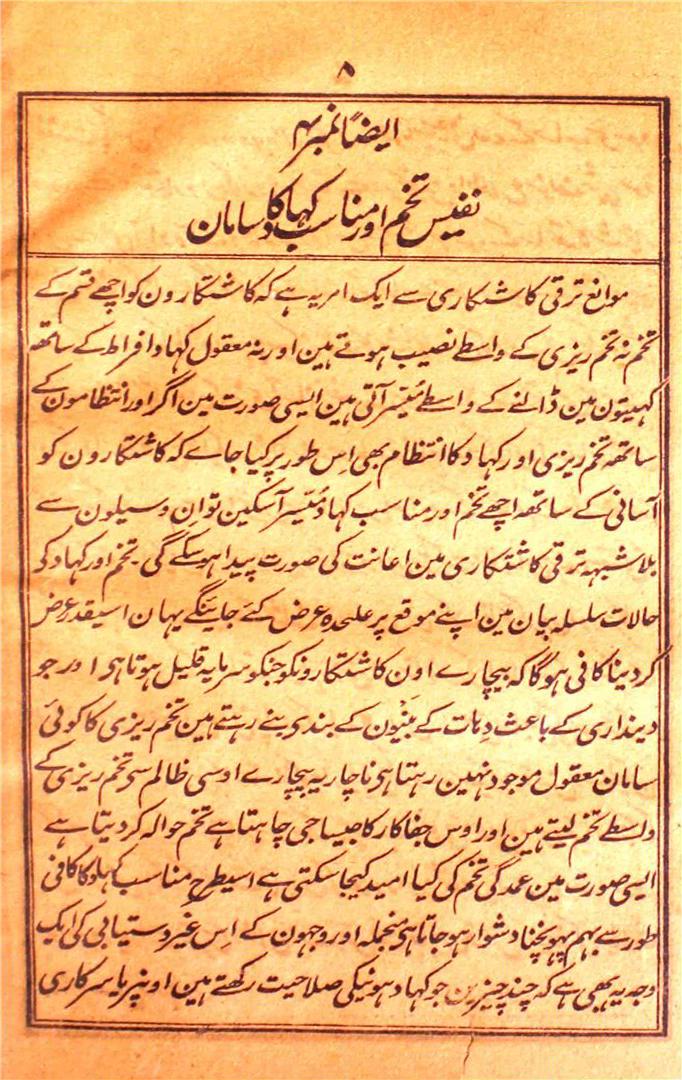 ۸
ایضاً نمبر ۴
نفیس تخم اور مناسب کہاد کا سامان
موانع ترقی کاشتکاری سے ایک امر یہ ہے کہ کاشتکارون کو اچھے قسم کے
تخم نہ تخم ریزی کے واسطے نصیب ہوتے ہین اور نہ معقول کہاد افراط کے ساتھ
کہیتون مین ڈالنے کے واسطے میسر آتی ہین ایسی صورت مین اگر اور انتظامون کے
ساتھ تخم ریزی اور کہاد کا انتظام بھی اِس طور پر کیا جاے کہ کاشتکارون کو
آسانی کے ساتھ اچھے تخم اور مناسب کہاد میسر آسکین تو اِن وسیلون سے
بلا شبہہ ترقی کاشتکاری مین اعانت کی صورت پیدا ہوسکے گی۔ تخم اور کہاد کی
حالات سلسلہ بیان مین اپنے موقع پر علحدہ عرض کئے جاینگے یہان اسیقدر عرض
کردینا کافی ہوگا کہ بیچارے اون کاشتکارونکو جنکو سرمایہ قلیل ہوتا ہی اور جو
دینداری کے باعث دِہات کے بنیون کے بندی بنے رہتے ہین تخم ریزی کا کوئی
سامان معقول موجود نہین رہتا ہی ناچار یہ بیچارے اوسی ظالم سی تخم ریزی کے
واسطے تخم لیتے ہین اور اوس جفاکار کا جیسا جی چاہتا ہے تخم حوالہ کردیتا ہے
ایسی صورت مین عمدگی تخم کی کیا امید کیجاسکتی ہے اسیطرح مناسب کہاد کا کافی
طور سے بہم پہونچنا دشوار ہوجاتا ہی منجملہ اور وجہون کے اِس غیر دستیابی کی ایک
وجہ یہ بھی ہے کہ چند چیزین جو کہاد ہونیکی صلاحیت رکھتے ہین اونپر یا سرکاری